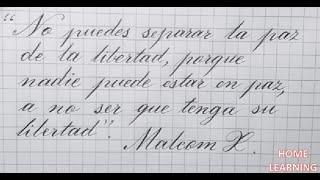 “No puedes separar la paz
de la libertad, porque
nadie puede estar en paz,
a no ser que tenga su
libertad”. Malcom X.
HOME
LEARNING